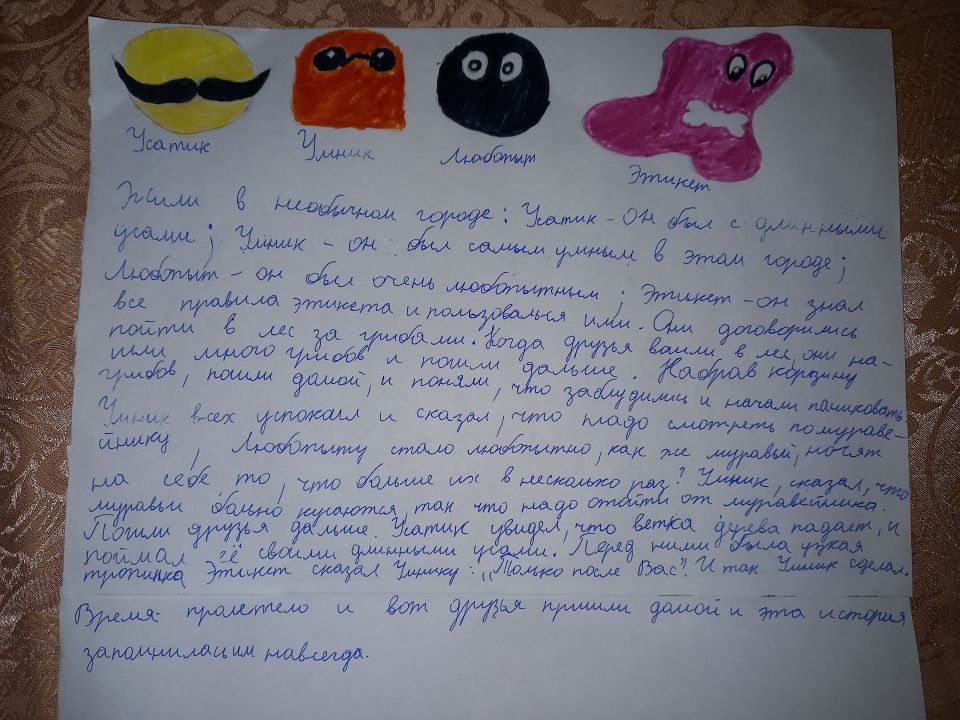 Усатик Умник Любопыт Этикет
Жили в необычном городе: Усатик - он был с длинными
усами; Умник - он был самым умным в этом городе;
Любопыт - он был очень любопытным; Этикет - он знал
все правила этикета и пользовалься ими. Они договорились
пойти в лес за грибами. Когда друзья вошли в лес, они на-
шли много грибов и пошли дальше. Набрав корзину
грибов, пошли домой, и поняли, что заблудились и начали паниковать.
Умник всех успокоил и сказал, что надо смотреть по мураве-
йнику, Любопыту стало любопытно, как же муравьй, носят
на себе то, что больше их в несколько раз? Умник, сказал, что
муравьи больно кусаются, так что надо отойти от муравейника.
Пошли друзья дальше. Усатик увидел, что ветка дерева падает, и
поймал её своими длинными усами. Перед ними была узкая
тропинка Этикет сказал Умнику: „Только после Вас". И так Умник сделал.
Время пролетело и вот друзья пришли домой и эта история
запомнилась им навсегда.